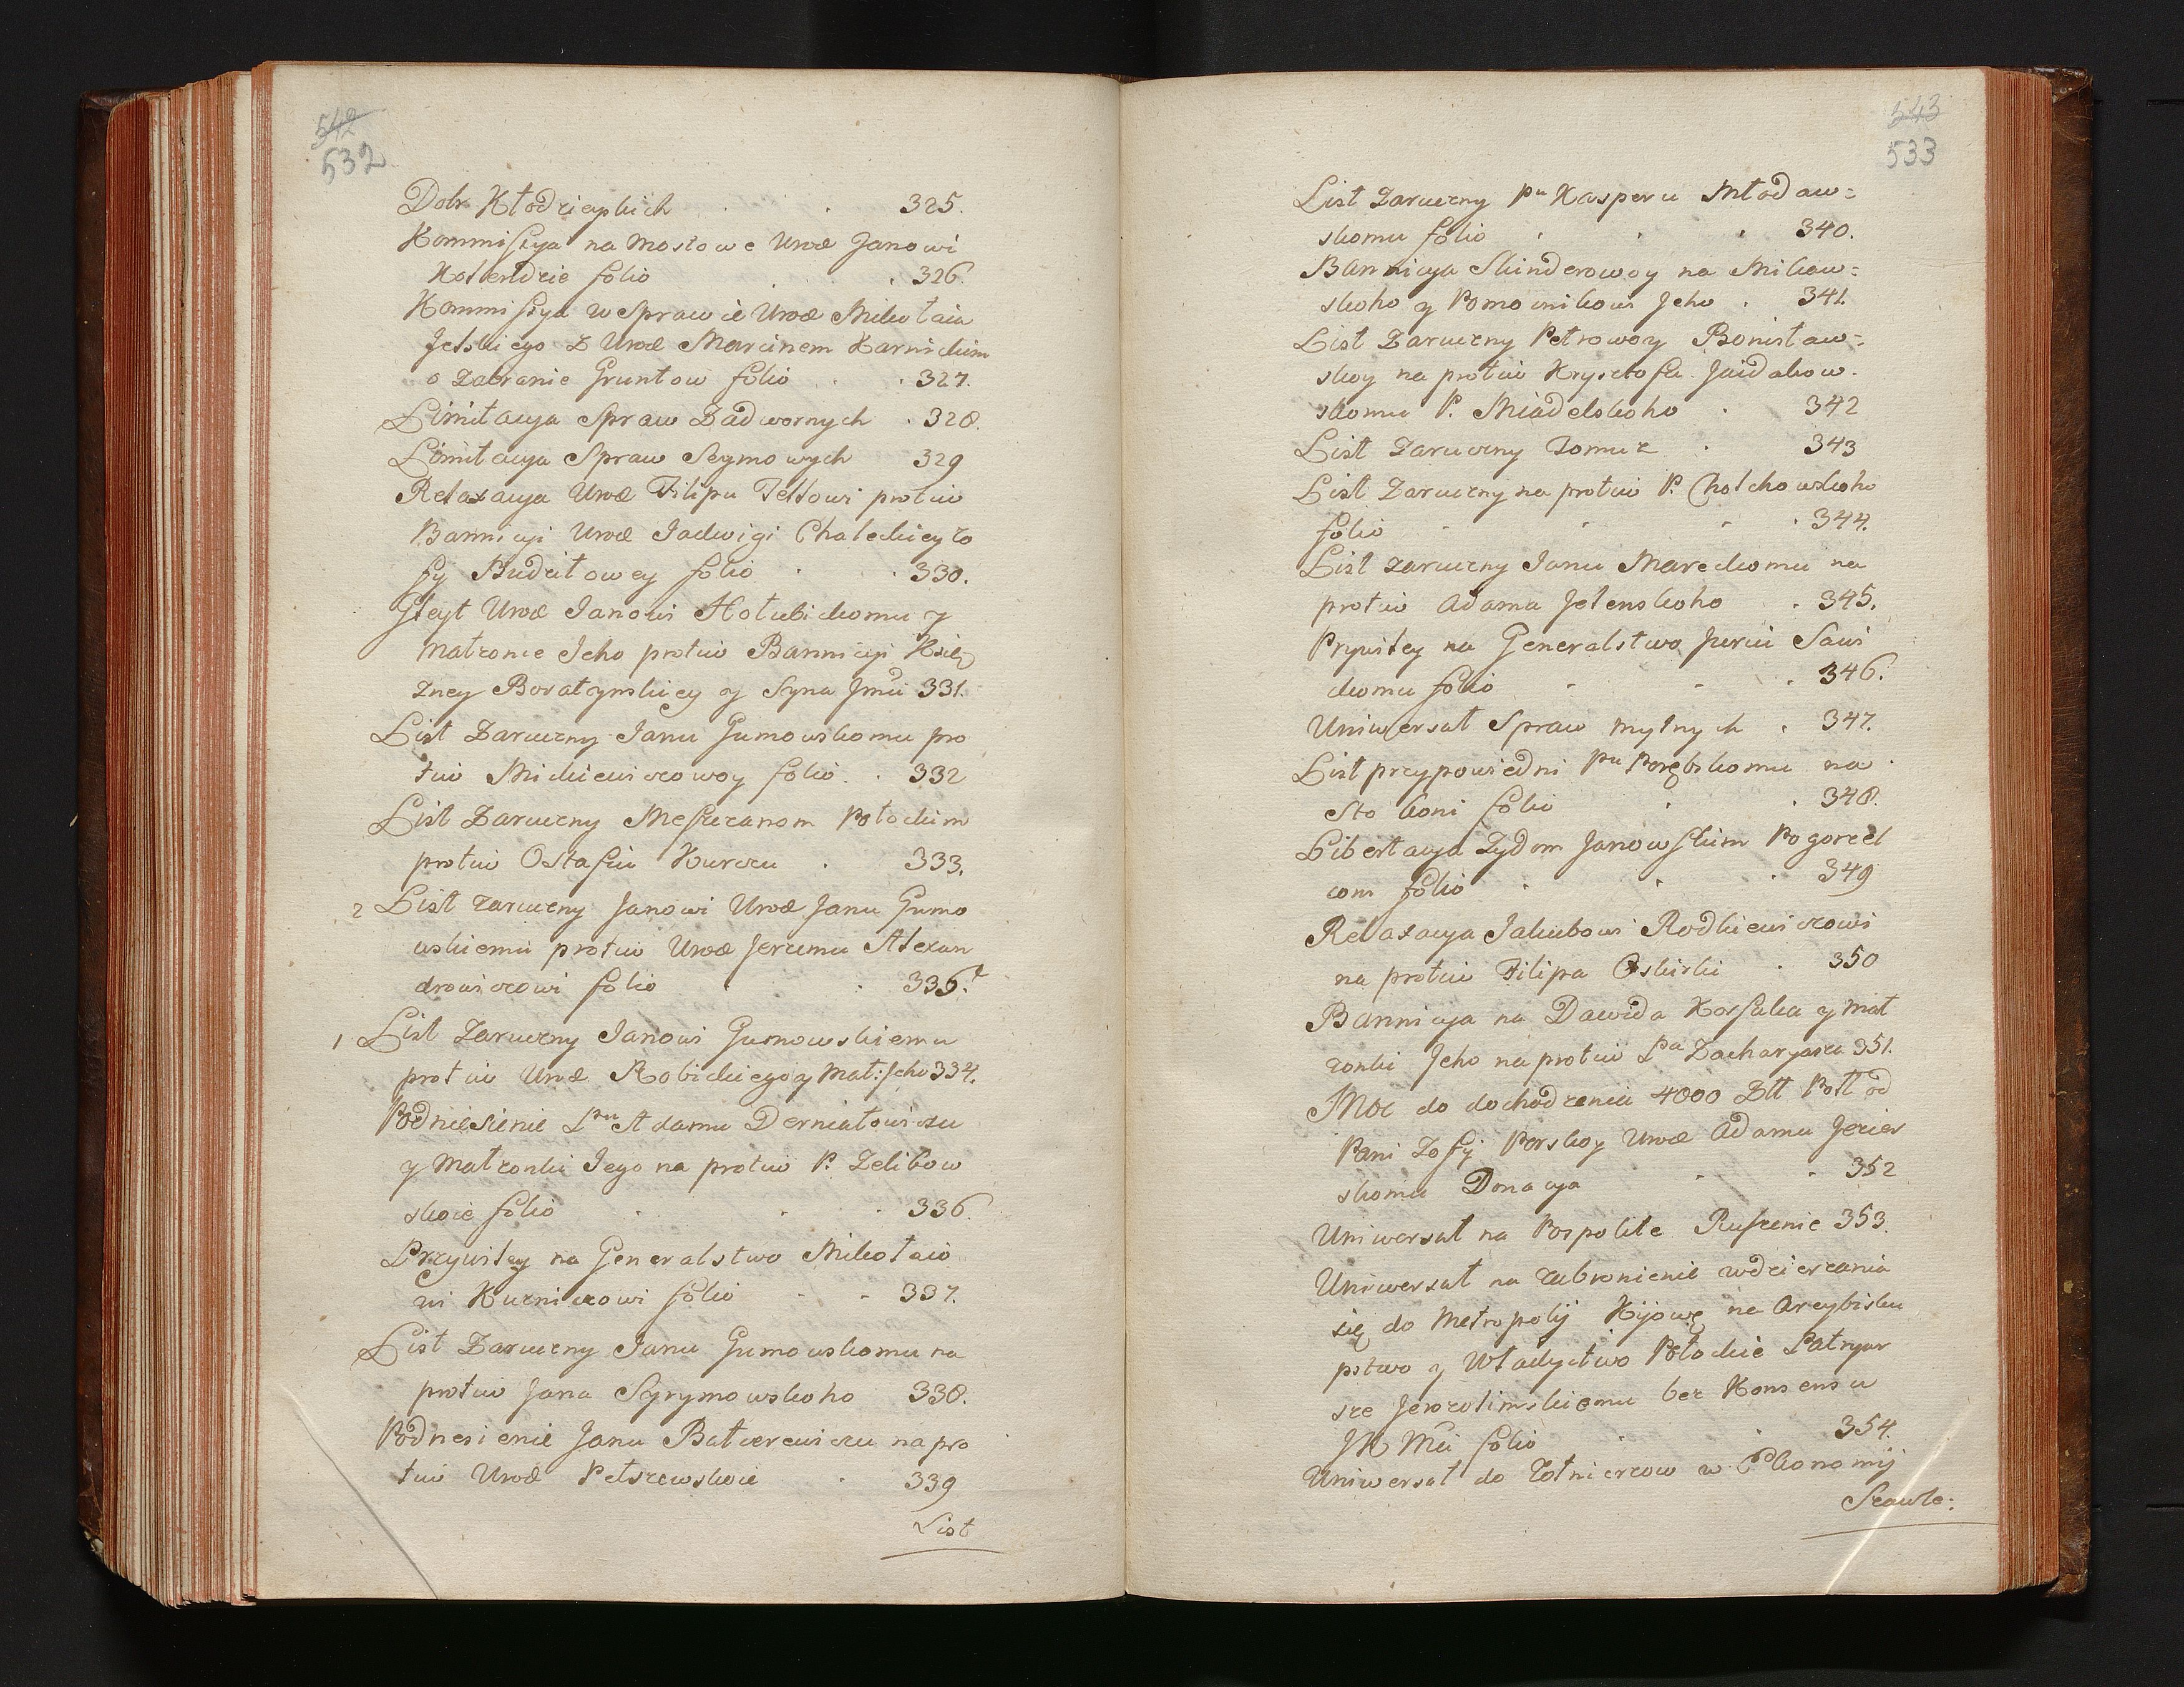 542
532
Dobr Kłodzieyskich . . 325.
Kommissya na Mostowe Urod Janowi
Kolendzie folio . . 326
Kommissya w Sprawie Urod Mikołaia
Jelskiego z Urod Marcinem Karnickim
o Zabranie Gruntow folio . . 327.
Limitacya Spraw Zadwornych . 328.
Limitacya Spraw Seymowych 329
Relaxacya Urod Filipu protiw
Bannicyi Urod Jadwigi Chaleckiey Zo
fij folio . . 330.
Gleyt Urod Janowi Hołubickomu y
Małzonce Jeho protiw Bannicyi Xię
zney Boratynskiey y Syna Jmci 331.
List Zaruczny Janu Gumowskomu pro
tiw Mickiewiczowoy folio . . 332
List Zaruczny Meszczanom Połockim
protiw Ostafiu Kurczu . 333.
2 List zaruczny Janowi Urod Janu Gumo
wskiemu protiw Urod Jeremu Alexan
drowiczowi folio . . 335.
1 List Zaruczny Janowi Gumowskiemu
protiw Urod Robickiego y Mał: Jeho 334.
Podniesienie Pnu Adamu Derniałowiczu
y Małzonki Jego na protiw P. Zelibow
skoie folio . . . 336.
Przywiley na Generalstwo Mikołaio
wi Kuzniczowi folio - - 337.
List Zaruczny Janu Gumowskomu na
protiw Jana Syrymowskoho 338.
Podnesienie Janu Bałcerewiczu na pro
tiw Urod Pełszewskoie . 339
List
543
533
List Zaruczny Pnu Kasperu Młodaw=
skomu folio . . . 340.
Bannicya Skinderowoy na Mikow=
skoho y Pomocnikow Jeho . 341.
List Zaruczny Petrowoy Bonisław=
skoy na protiw Krysztofu Jaidakow-
skomu P. Miadelskoho . 342
List Zaruczny Tomuz . 343
List Zaruczny na protiw P. Chołchowskoho
folio - - - . 344.
List zaruczny Janu Mareckomu na
protiw Adama Jelenskoho . 345.
Prywiley na Generalstwo Juriu Sawi
ckomu folio - - - 346.
Uniwersał Spraw mytnych . 347.
List przypowiedni Pnu Porębskomu na
sto koni folio . . 348.
Libertacya Zydom Janowskim Pogorzel
com folio . . . 349
Relaxacya Jakubowi Rodkiewiczowi
na protiw Filipa Oskirki . 350
Bannicya na Dawida Korsaka y Mał
zonki Jeho na protiw Pna Zacharyasza 351.
Moc do dochodzenia 4000 Złł Poll od
Pani Zofij Porskoy Urod Adamu Jezier
skomu Donacya - - 352
Uniwersał na Pospolite Ruszenie 353.
Uniwersał na zabronienie wdzierzania
się do Metropolij Kijowę na Arcybisku
pstwo y Władyctwo Połockie Patryar
sze Jerozolimskiemu bez Konsensu
JKMci folio . . 354.
Uniwersał do Zołnierzow w Ekonomij
Szawle: